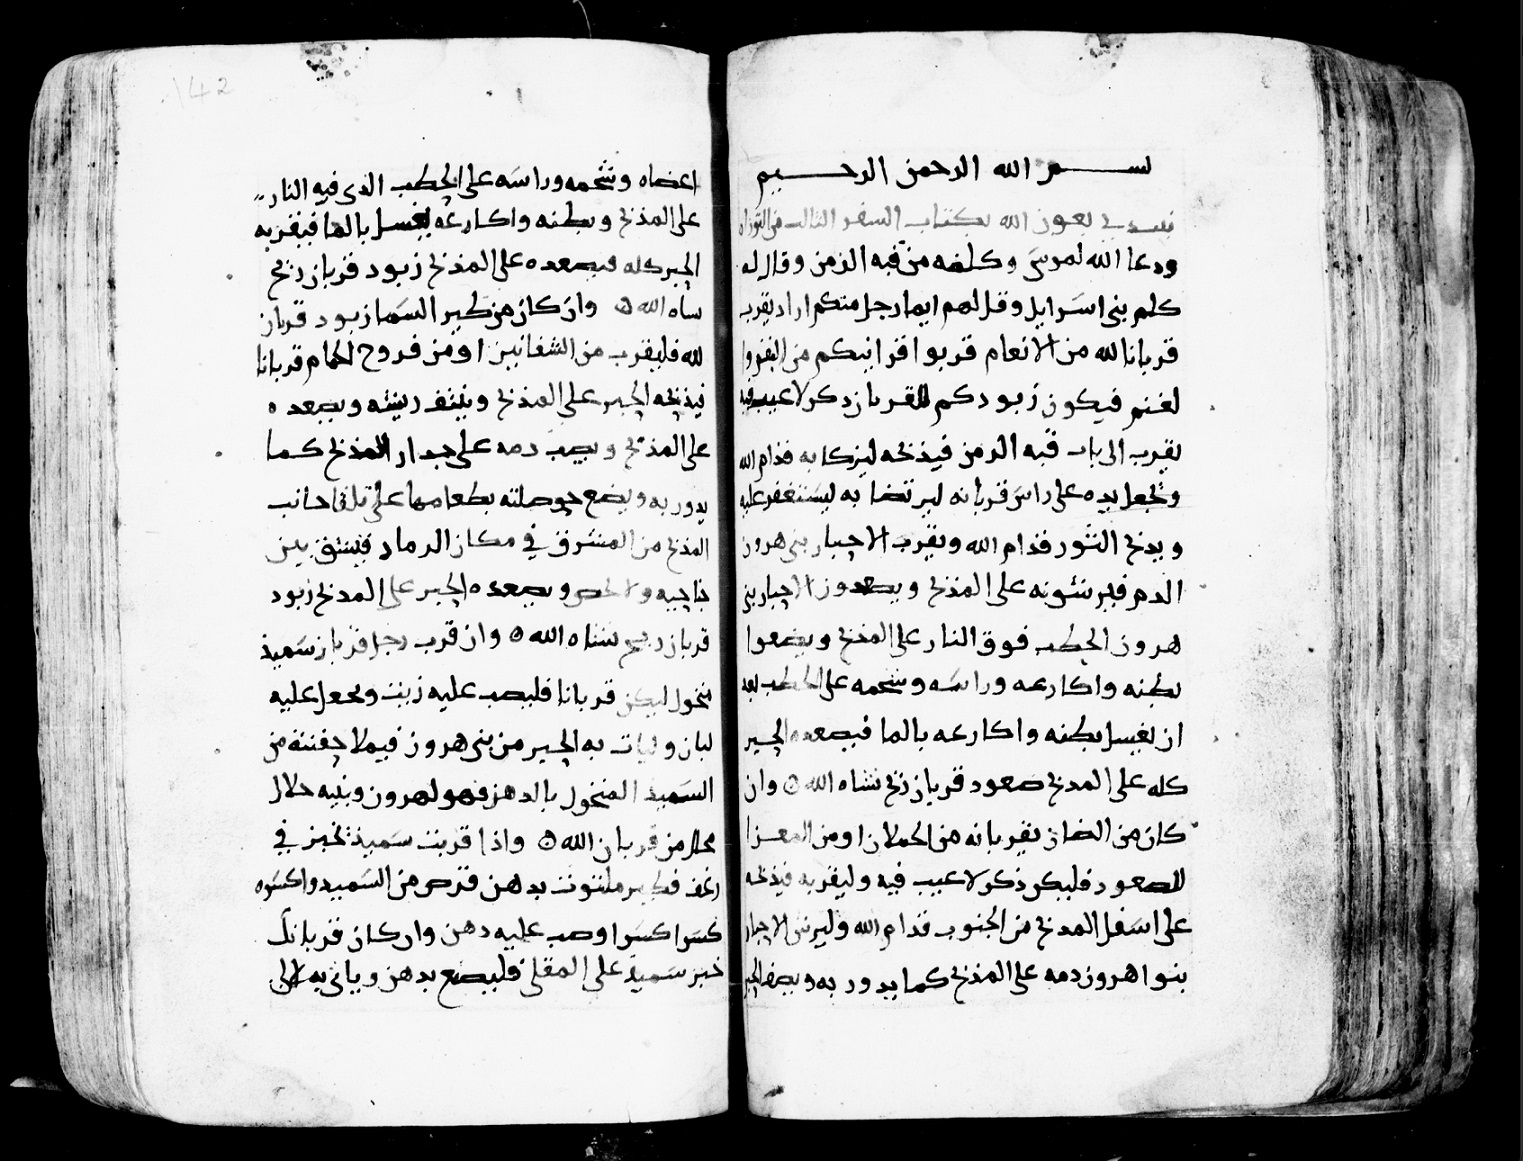 بسم الله الرحمن الرحيم
نبتدي بعون الله بكتاب السفر الثالث من التوراه
ودعا الله لموسى وكلمه من قبه الزمن وقال له
كلم بني اسرايل وقل لهم ايما رجل منكم اراد يقرب
قربانا لله من الانعام قربوا قرابينكم من البقر وا
لغنم فيكون زبودكم للقربان دكر لا عيب فيه
يقرب الى باب قبه الزمن فيذبحه ليزكا به قدام الله
ويجعل يده على راس قربانه ليرتضا به ليستغفر عليه
ويذبح الثور قدام الله ويقرب الاحبار بني هرون
الدم فيرشونه على المذبح ويصعدون الاحبار بني
هرون الحطب فوق النار على المذبح ويضعوا
بطنه واكارعه وراسه وشحمه على الحطب بعد
ان يغسل بطنه واكارعه بالما فيصعده الحبر
كله على المدبح صعود قربان ذبح نشاه الله ۞ وان
كان من الضان بقربانه من الحملان او من المعزا
للصعود فليكن ذكر لا عيب فيه وليقربه فيذبحه
على اسفل المدبح من الجنوب قدام الله وليرش الاحبار
بنوا هرون دمه على المذبح كما يدور به ويصف الحبر
اعضاه وشحمه وراسه على الحطب الذي فيه النار
على المذبح وبطنه واكارعه يغسل بالما فيقربه
الحبر كله فيصعده على المذبح زبود قربان ذبح
ساه الله ۞ وان كان من طير السما زبود قربان
لله فليقرب من الشفانين او من فروح الحمام قربانا
فيذبحه الحبر على المذبح وينتف ريشه ويصعده
على المذبح ويصب دمه على جدار المذبح كما
يدور به ويضع حوصلته بطعامها على تلقا جانب
المذبح من المشرق في مكان الرماد فيشق بين
جناحيه ولا يخص ويصعده الحبر على المدبح زبود
قربان دبح نشاه الله ۞ وان قرب رجل قربان سميذ
منخول ليكن قربانا فليصب عليه زيت ويجعل عليه
لبان وليات به الحبر من بني هرون فيملا حفنته من
السميذ المنخول بالدهن فهو لهرون وبنيه حلال
محلا من قربان الله ۞ واذا قربت سميذ تخبز في
فطير ملتوت بدهن قرص من السميد واكسره
كسرا كسرا وصب عليه دهن وان كان قربانك
خبز سميذ على المقلى فليصنع بدهن وياتي به الى